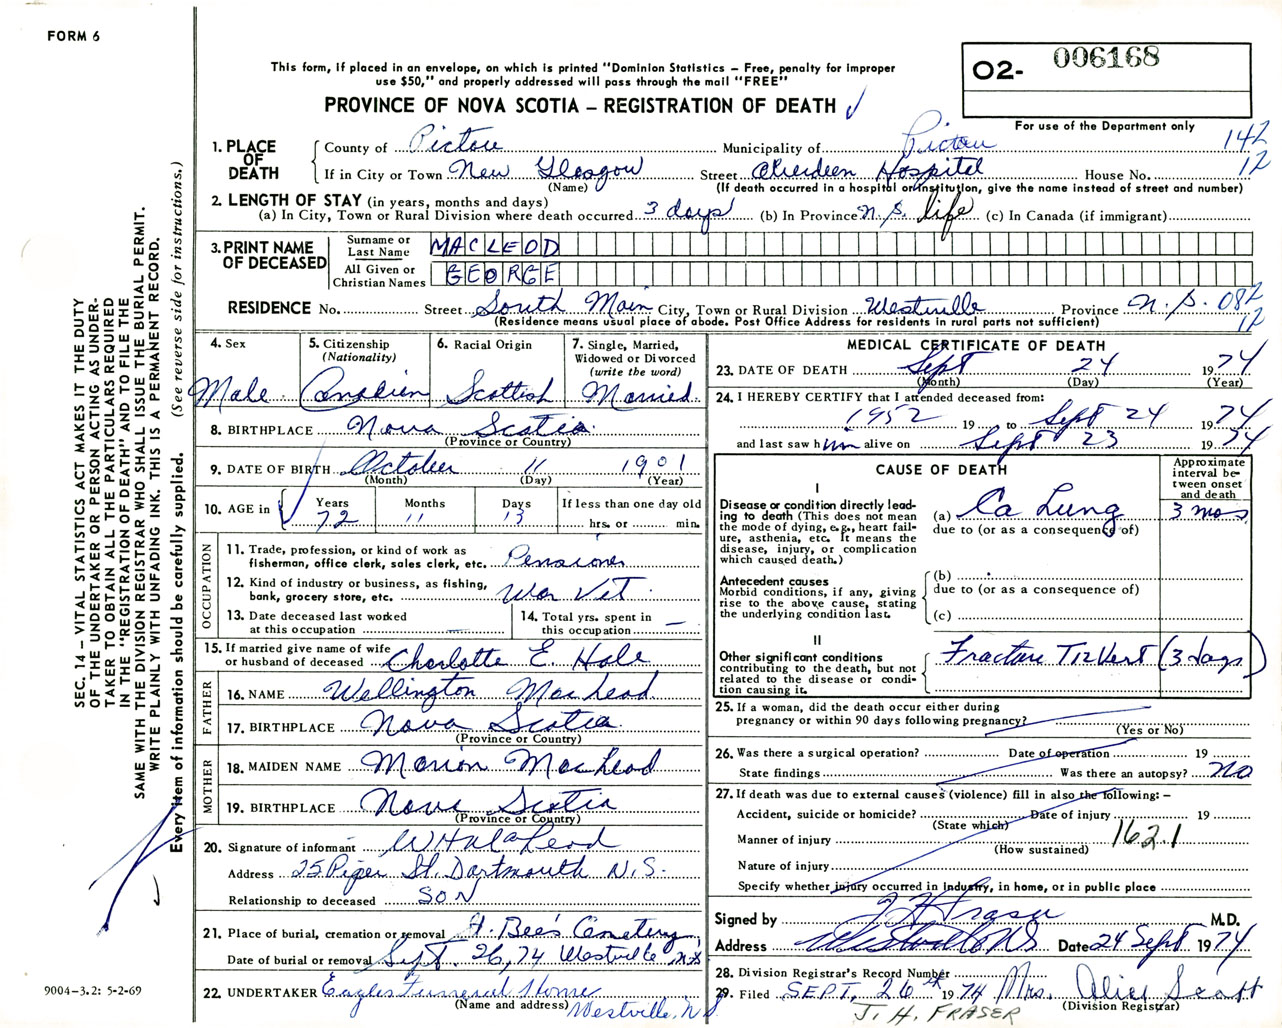 FORM 6
This form, if placed in an envelope, on which is printed "Dominion Statistics – Free, penalty for improper
use $50," and properly addressed will pass through the mail "FREE"
PROVINCE OF NOVA SCOTIA – REGISTRATION OF DEATH
O2- 006168
For use of the Department only
1. PLACE OF DEATH
County of Pictou Municipality of Pictou 142
If in City or Town New Glasgow Street Aberdeen Hospital House No. 12
(Name) (If death occurred in a hospital or institution, give the name instead of street and number)
2. LENGTH OF STAY (in years, months and days)
(a) In City, Town or Rural Division where death occurred 3 days (b) In Province N.S. life (c) In Canada (if immigrant)
3. PRINT NAME OF DECEASED
Surname or Last Name MACLEOD
All Given or Christian Names GEORGE
RESIDENCE No. Street South Main City, Town or Rural Division Westville Province N.S. 082
12
(Residence means usual place of abode. Post Office Address for residents in rural parts not sufficient)
4. Sex
Male
5. Citizenship
(Nationality)
Canadian
6. Racial Origin
Scottish
7. Single, Married,
Widowed or Divorced
(write the word)
Married
8. BIRTHPLACE Nova Scotia
(Province or Country)
9. DATE OF BIRTH October 11 1901
(Month) (Day) (Year)
10. AGE in
Years Months Days If less than one day old
72 11 13 hrs. or min.
OCCUPATION
11. Trade, profession, or kind of work as
fisherman, office clerk, sales clerk, etc. Pensioner
12. Kind of industry or business, as fishing,
bank, grocery store, etc. War Vet
13. Date deceased last worked
at this occupation —
14. Total yrs. spent in
this occupation —
15. If married give name of wife
or husband of deceased Charlotte E. Hale
FATHER
16. NAME Wellington MacLeod
17. BIRTHPLACE Nova Scotia
(Province or Country)
MOTHER
18. MAIDEN NAME Marion MacLeod
19. BIRTHPLACE Nova Scotia
(Province or Country)
20. Signature of informant W H MacLeod
Address 25 Piper St. Dartmouth N.S.
Relationship to deceased SON
21. Place of burial, cremation or removal Bee's Cemetery
Date of burial or removal Sept. 26, 74 Westville N.S
22. UNDERTAKER Eagles Funeral Home
(Name and address) Westville, N S.
MEDICAL CERTIFICATE OF DEATH
23. DATE OF DEATH Sept 24 1974
(Month) (Day) (Year)
24. I HEREBY CERTIFY that I attended deceased from:
1952 19 to Sept 24 1974
and last saw him alive on Sept 23 1974
CAUSE OF DEATH
Approximate
interval be-
tween onset
and death
I
Disease or condition directly lead-
ing to death (This does not mean
the mode of dying, e.g., heart fail-
ure, asthenia, etc. It means the
disease, injury, or complication
which caused death.)
(a) Ca Lung 3 mos
due to (or as a consequence of)
Antecedent causes
Morbid conditions, if any, giving
rise to the above cause, stating
the underlying condition last.
(b)
due to (or as a consequence of)
(c)
II
Other significant conditions
contributing to the death, but not
related to the disease or condi-
tion causing it.
Fracture T12 Vert (3 days)
25. If a woman, did the death occur either during
pregnancy or within 90 days following pregnancy?
(Yes or No)
26. Was there a surgical operation? Date of operation 19
State findings Was there an autopsy? no
27. If death was due to external causes (violence) fill in also the following: –
Accident, suicide or homicide? Date of injury 19
(State which)
Manner of injury 162.1
(How sustained)
Nature of injury
Specify whether injury occurred in industry, in home, or in public place
Signed by J H Fraser M.D.
Address Westville NS Date 24 Sept 1974
28. Division Registrar's Record Number
29. Filed SEPT, 26th 1974 Mrs. Alice Scott
(Division Registrar)
J. H. FRASER
SEC. 14 – VITAL STATISTICS ACT MAKES IT THE DUTY
OF THE UNDERTAKER OR PERSON ACTING AS UNDER-
TAKER TO OBTAIN ALL THE PARTICULARS REQUIRED
IN THE "REGISTRATION OF DEATH" AND TO FILE THE
SAME WITH THE DIVISION REGISTRAR WHO SHALL ISSUE THE BURIAL PERMIT.
WRITE PLAINLY WITH UNFADING INK. THIS IS A PERMANENT RECORD.
Every item of information should be carefully supplied. (See reverse side for instructions.)
9004-3.2: 5-2-69